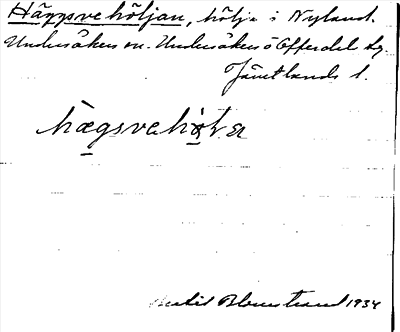 Häggsvehöljan, hölja i Nyland.
Undersåkers sn. Undersåkers o Offerdal tg.
Jämtlands l.
hægsvehøl
Blomstrand 1934